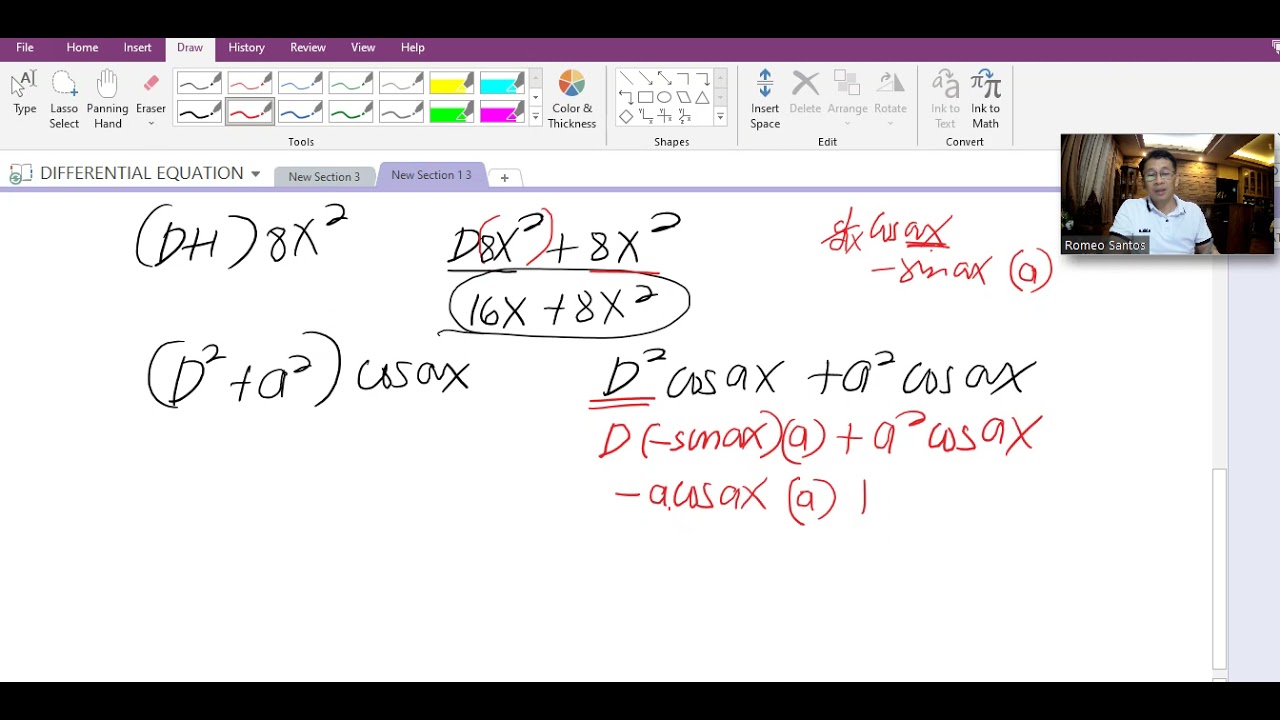 File Home Insert Draw History Review View Help
Type Lasso Select Panning Hand Eraser Color & Thickness Insert Space Delete Arrange Rotate Ink to Text Ink to Math
Tools Shapes Edit Convert
DIFFERENTIAL EQUATION New Section 3 New Section 1 3 +
Romeo Santos
(D+1) 8X² D(8X²) + 8X² d/dx cos ax
-sin ax (a)
16X + 8X²
(D² + a²) cos ax D² cos ax + a² cos ax
D(-sin ax)(a) + a² cos ax
-a cos ax (a)